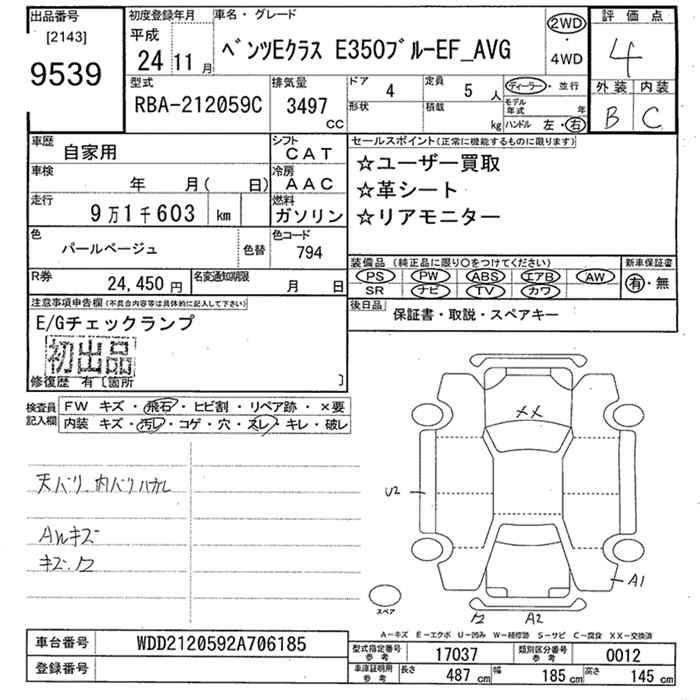 出品番号
[2143]
9539
初度登録年月
平成
24 11 月
車名・グレード
ベンツEクラス E350ブルーEF_AVG
2WD
・
4WD
評価点
4
外装 内装
B C
型式
RBA-212059C
排気量
3497
CC
ドア
4
定員
5 人
形状
積載
kg
ディーラー・並行
モデル年式 年
ハンドル 左・右
車歴
自家用
シフト
CAT
車検
年 月( 日)
冷房
AAC
走行
9万1千603 km
燃料
ガソリン
色
パールベージュ
色替
色コード
794
R券
24,450 円
名変通知期限
月 日
セールスポイント(正常に機能するものに限ります)
☆ユーザー買取
☆革シート
☆リアモニター
装備品 (純正品に限り○をつけてください)
新車保証書
PS PW ABS エアB AW
SR ナビ TV カワ
有・無
後日品
保証書・取説・スペアキー
注意事項申告欄(不具合内容等は具体的に記入して下さい)
E/Gチェックランプ
初出品
修復歴 有〔箇所 〕
検査員
記入欄
FW キズ・飛石・ヒビ割・リペア跡・×要
内装 キズ・汚レ・コゲ・穴・スレ・キレ・破レ
天バリ、内バリハガレ
AWキズ
キズ、ワ
XX
U2
A1
ワ A2
スペア
A－キズ E－エクボ U－凹み W－補修跡 S－サビ C－腐食 XX－交換済
車台番号
WDD2120592A706185
登録番号
型式指定番号
参考
17037
類別区分番号
参考
0012
車庫証明用
参考
長さ 487 cm 幅 185 cm 高さ 145 cm